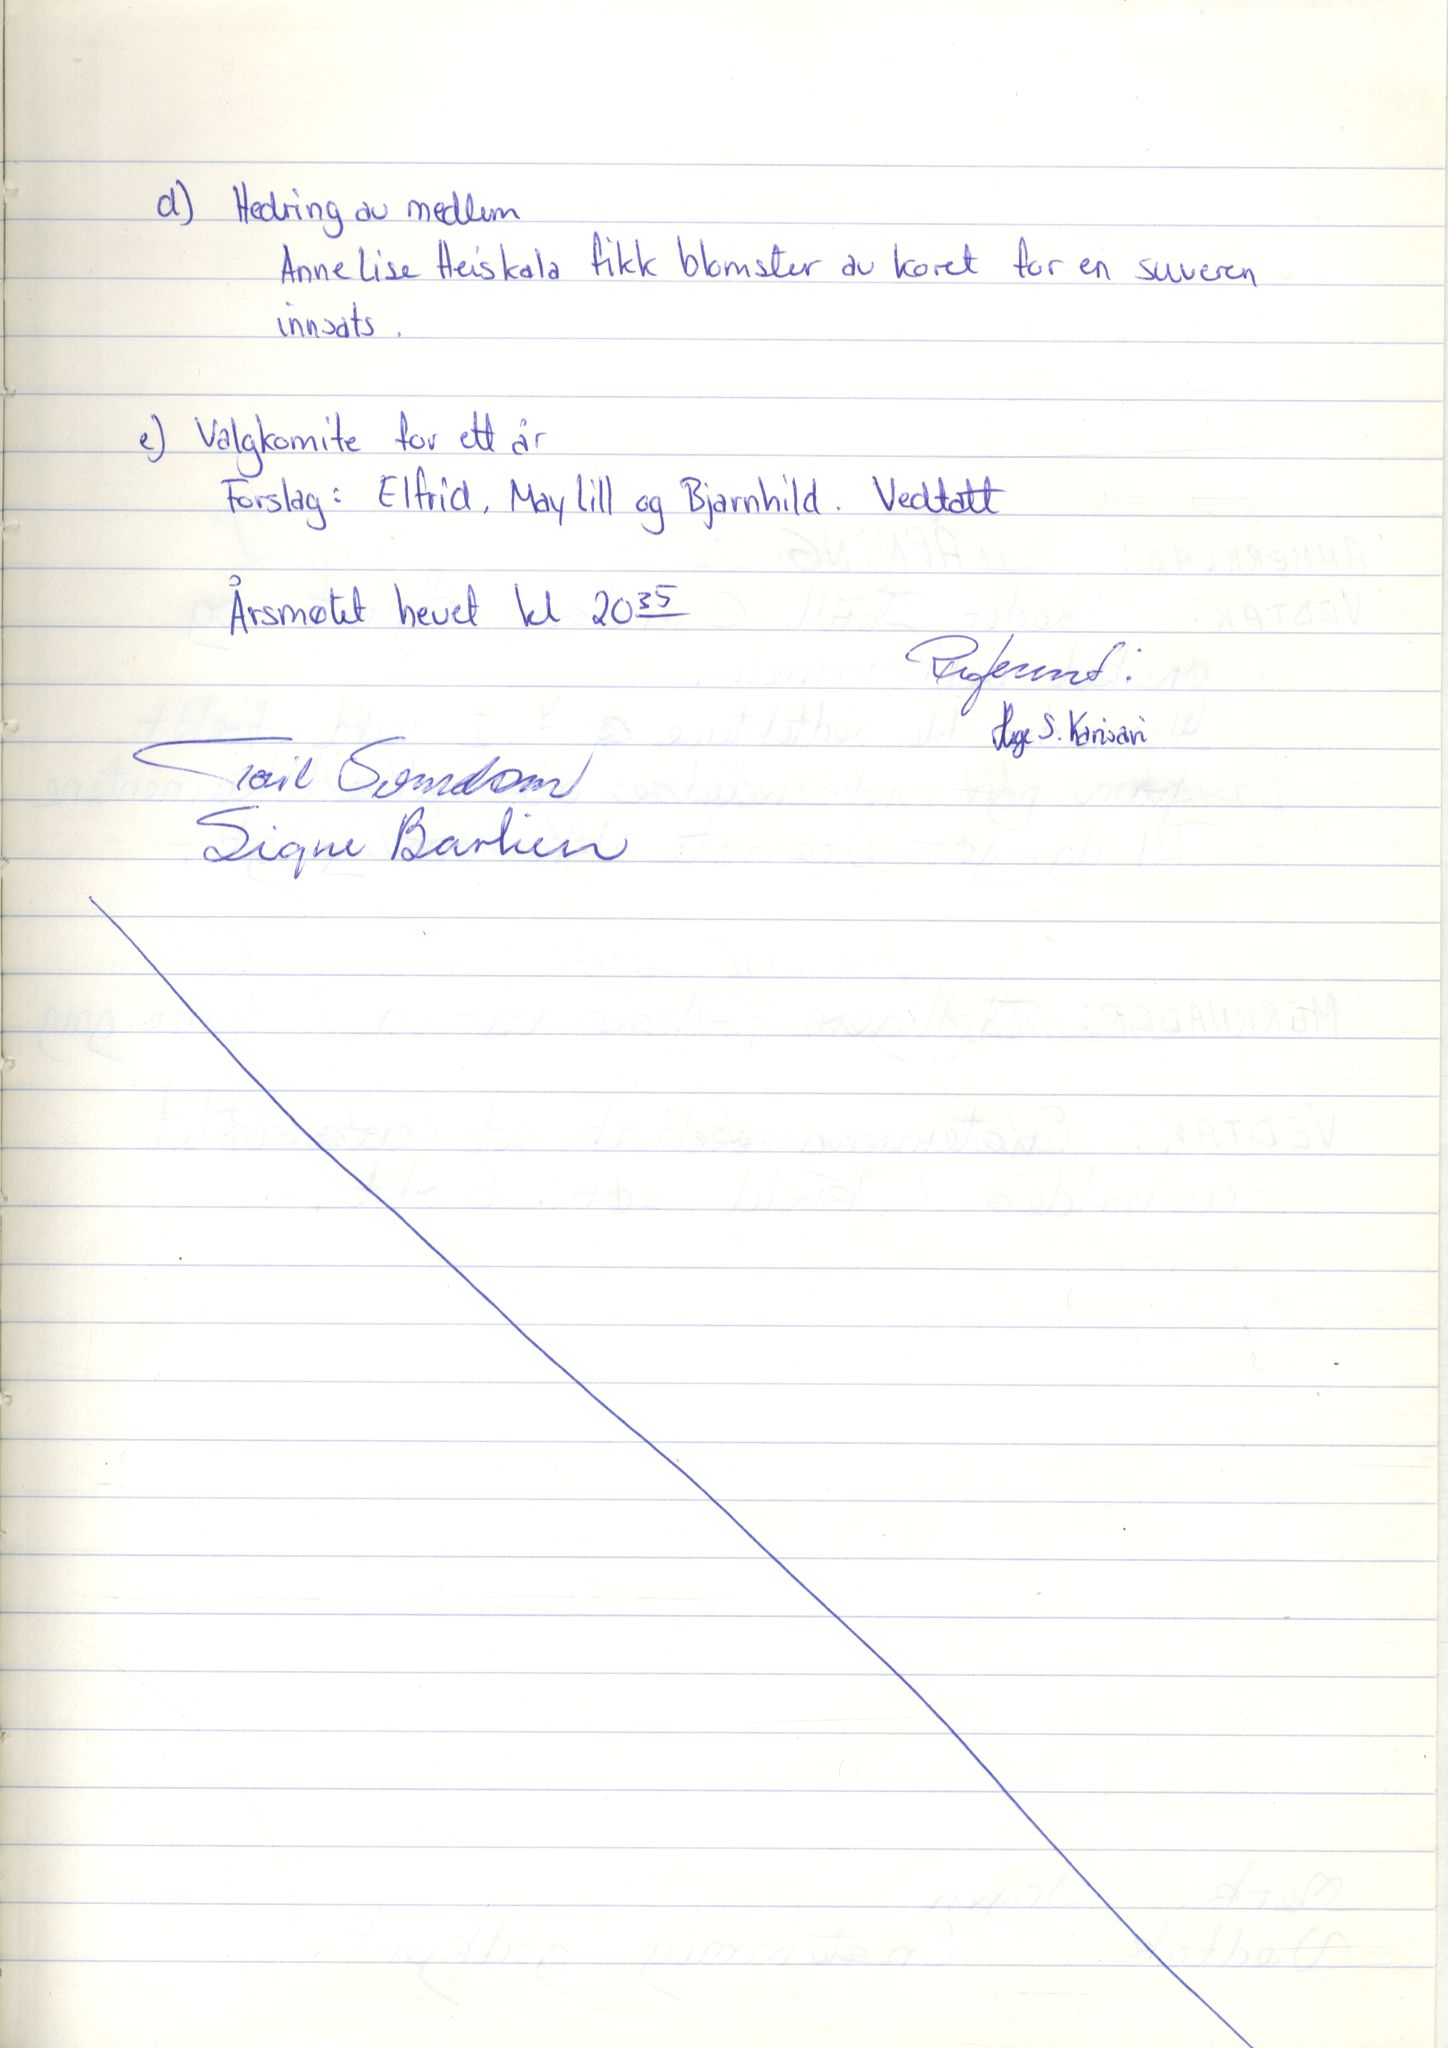 d) Hedring av medlem
Anne Lise Heiskala fikk blomster av koret for en suveren
innsats.
e) Valgkomite for ett år
Forslag: Elfrid, May lill og Bjarnhild. Vedtatt
Årsmøtet hevet kl 20 35
Referent:
S. Karisari
Signe Barlien